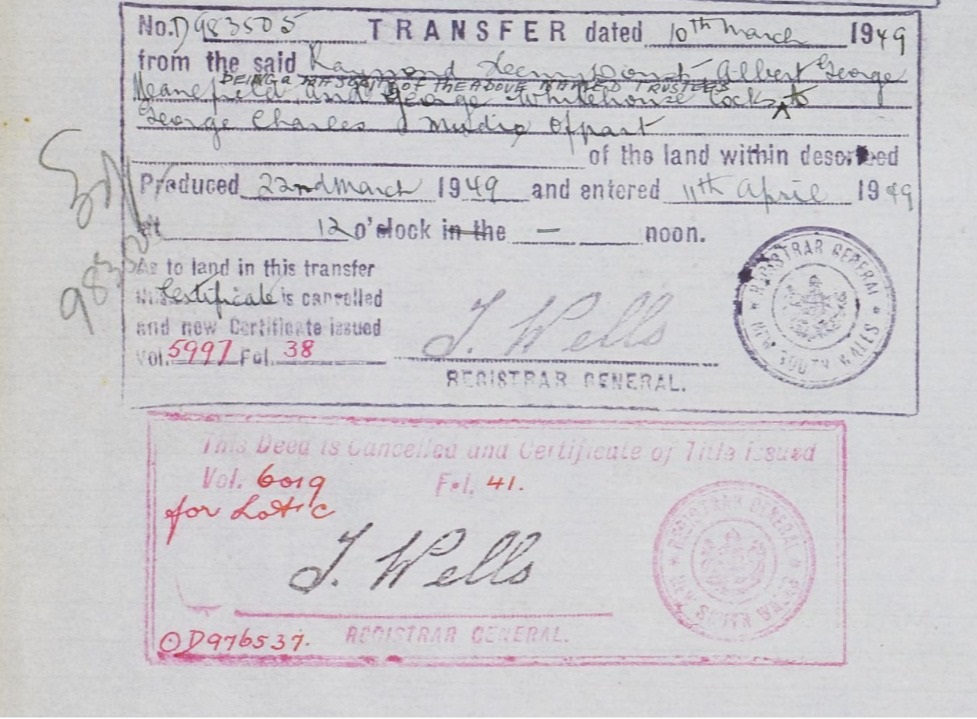 No. D983505 TRANSFER dated 10th March 1949
from the said Raymond Albert George
BEING A MAJORITY OF THE ABOVE NAMED TRUSTEES
and George Whitehouse Cocks to
George Charles Mudie of part
of the land within described
Produced 22nd March 1949 and entered 11th April 1949
at 12 o'clock in the — noon.
As to land in this transfer
this Certificate is cancelled
and new Certificate issued
Vol. 5997 Fol. 38
J. Wells
REGISTRAR GENERAL.
REGISTRAR GENERAL * NEW SOUTH WALES *
This Deed is Cancelled and Certificate of Title issued
Vol. 6019 Fol. 41.
for Lot C
J. Wells
REGISTRAR GENERAL.
D976537.
REGISTRAR GENERAL * NEW SOUTH WALES *